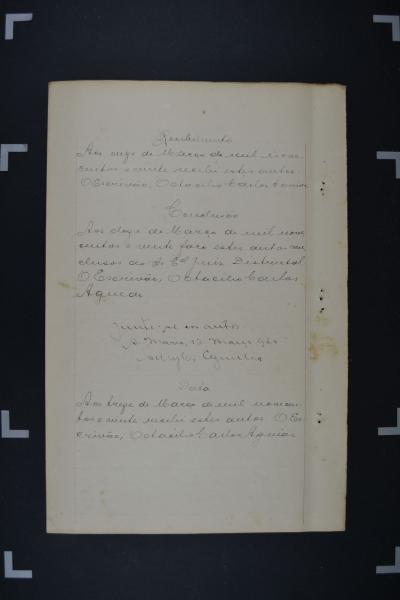 Recebimento
Aos onze de Março de mil nove
centos e vinte recebi estes autos.
O Escrivão, Octacilio Carlos
Conclusão
Aos doze de Março de mil nove
centos e vinte faço estes autos con
clusos ao Sr Cel Juiz Districtal
O Escrivão, Octacilio Carlos
Aguiar
Junte-se aos autos.
S. Maria, 12 Março 920
Data
Aos treze de Março de mil novecen
tos e vinte recebi estes autos O Es
crivão, Octacilio Carlos Aguiar